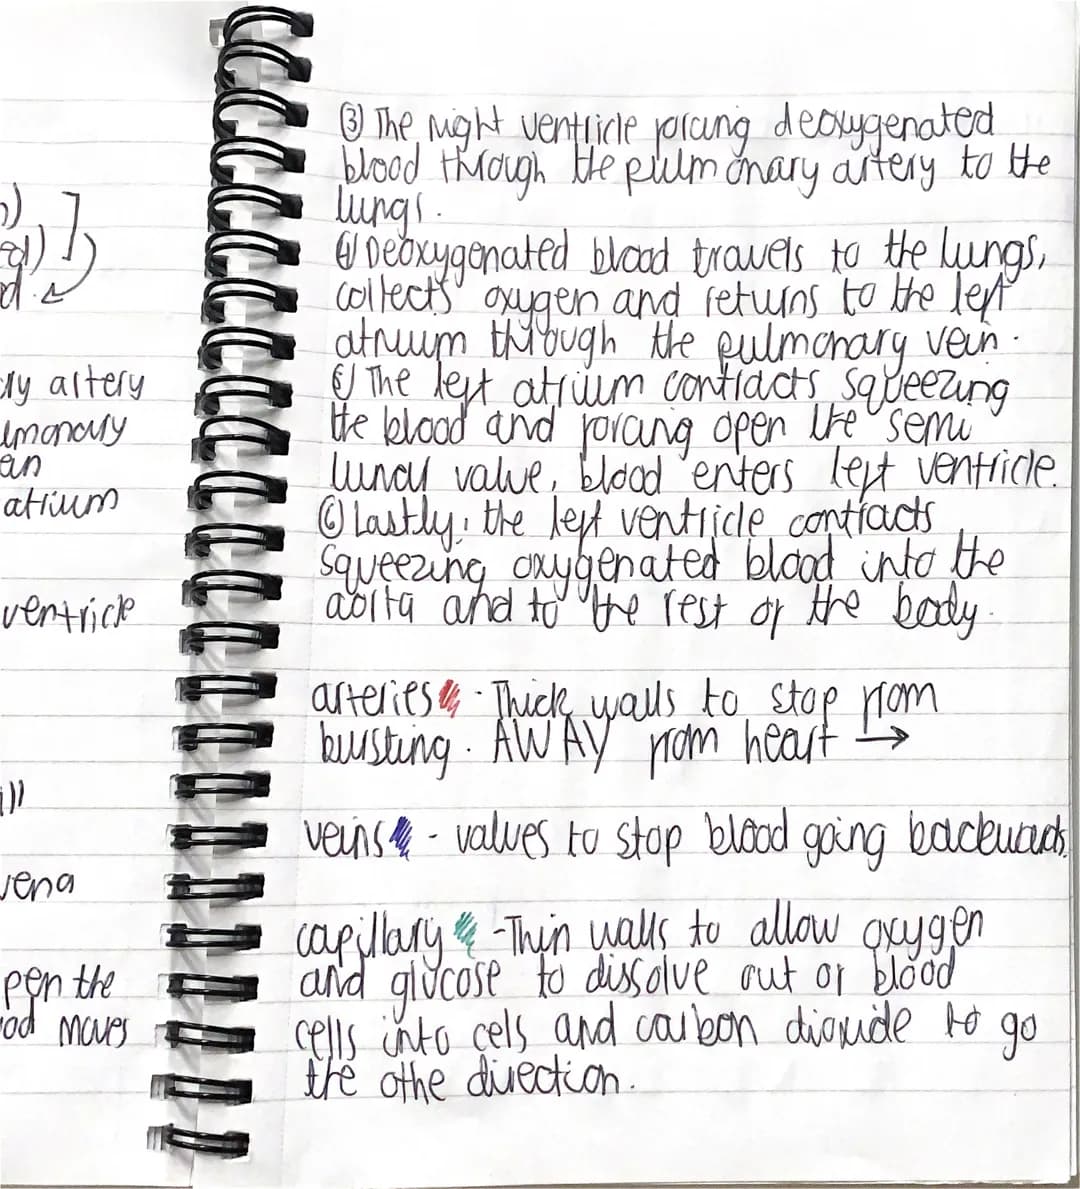 ry artery
lmonary
atrium
ventricle
vena
pen the
od moves
③ The right ventricle forcing deoxygenated
blood through the pulmonary artery to the
lungs.
④ Deoxygenated blood travels to the lungs,
collects oxygen and returns to the left
atrium through the pulmonary vein.
⑤ The left atrium contracts squeezing
the blood and forcing open the semi
lunar valve, blood enters left ventricle.
⑥ Lastly, the left ventricle contracts
squeezing oxygenated blood into the
aorta and to the rest of the body.
arteries - Thick walls to stop from
bursting. AWAY from heart →
veins - valves to stop blood going backwards.
capillary - Thin walls to allow oxygen
and glucose to dissolve out of blood
cells into cels and carbon dioxide to go
the othe direction.